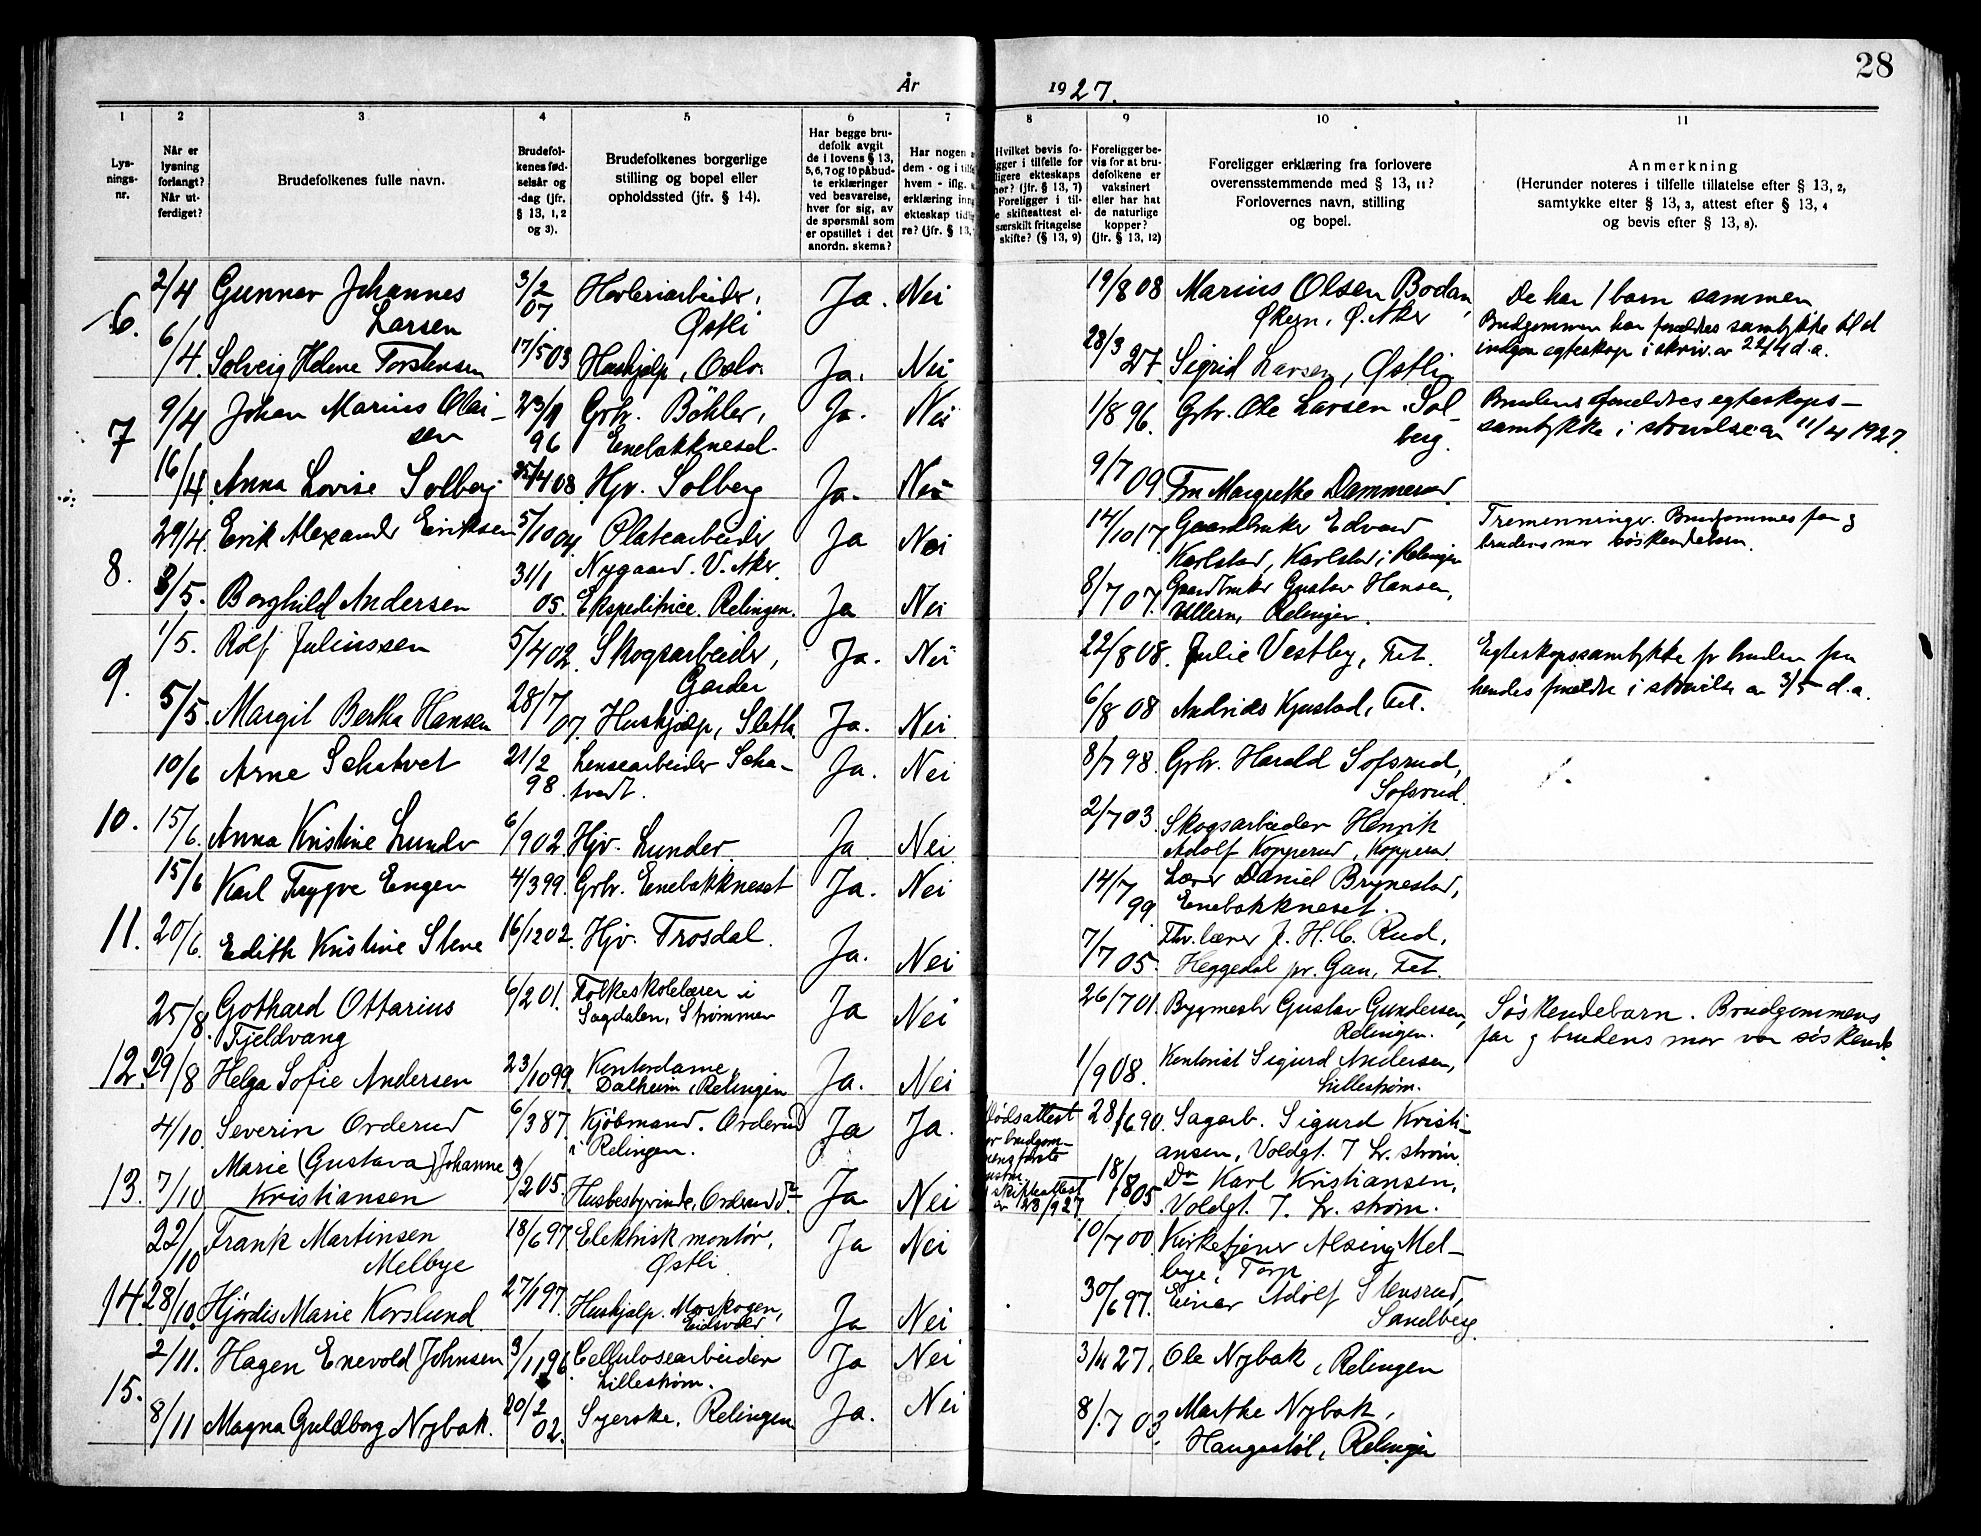 28
År 1927.
1 2 3 4 5 6 7 8 9 10 11
Lys-
nings-
nr.
Når er
lysning
forlangt?
Når ut-
ferdiget?
Brudefolkenes fulle navn.
Brudefol-
kenes fød-
selsår og
-dag (jfr.
§ 13, 1, 2
og 3).
Brudefolkenes borgerlige
stilling og bopel eller
opholdssted (jfr. § 14).
Har begge bru-
defolk avgit
de i lovens § 13,
5, 6, 7 og 10 påbud-
te erklæringer
ved besvarelse,
hver for sig, av
de spørsmål som
er opstillet i det
anordn. skema?
Har nogen
dem - og i tilf
hvem - iflg.
erklæring inn
ekteskap tidli
re? (jfr. § 13,
Hvilket bevis fo-
igger i tilfelle for
ligere ekteskaps
hør? (jfr. § 13, 7)
Foreligger i til-
e skifteattest el-
særskilt fritagelse
skifte? (§ 13, 9)
Foreligger be-
vis for at bru-
defolkene er
vaksinert
eller har hat
de naturlige
kopper?
(jfr. § 13, 12)
Foreligger erklæring fra forlovere
overensstemmende med § 13, 11?
Forlovernes navn, stilling
og bopel.
Anmerkning
(Herunder noteres i tilfelle tillatelse efter § 13, 2,
samtykke efter § 13, 3, attest efter § 13, 4
og bevis efter § 13, 8).
6. 2/4 Gunnar Johannes Larsen 3/2 07 Høvleriarbeider, Østli Ja. Nei 19/8 08 Marius Olsen Bodan, Økern, Ø. Aker De har 1 barn sammen
Brudgommen har foreldres samtykke til at
indgaa egteskap i skriv. av 22/4 d.a.
6/4. Solveig Helene Torstensen 17/5 03 Huskjelp, Oslo. Ja. Nei 28/3 27. Sigrid Larsen, Østli
7 9/4 Johan Marius Olai-
sen 23/11 96 Grbr. Böhler, Enebakkneset. Ja. Nei 1/8 96. Grbr. Ole Larsen Sol-
berg. Brudens foreldres egteskaps-
samtykke i skrivelse av 11/4 1927.
16/4. Anna Lovise Solberg 25/4 08. Hjv. Solberg Ja. Nei 9/7 09 Fru Margrethe Dammerud
8. 29/4. Erik Alexander Eriksen 5/10 04 Platearbeider Nygaard. V. Aker. Ja Nei 14/10 17. Gaardbruker Edvard
Karlstad, Karlstad i Relingen Tremenninger. Brudgommens far og
brudens mor söskendebarn.
3/5. Borghild Andersen 31/1 05. Ekspeditrice. Relingen. Ja Nei 8/7 07. Gaardbruker Gustav Hansen,
Ullern, Relingen.
9. 1/5. Rolf Juliussen 5/4 02. Skogsarbeider, Garder Ja. Nei 22/8 08. Julie Vestby, Fet. Egteskapssamtykke for bruden fra
hendes foreldre i skrivelse av 3/5 d.a.
5/5. Margit Bertha Hansen 28/7 07. Huskjælp, Sletta Ja. Nei. 6/8 08 Andreas Kjustad, Fet.
10. 10/6 Arne Schatvet 21/2 98. Lensearbeider Scha-
tvedt. Ja. Nei 8/7 98. Grbr. Harald Sofsrud,
Sofsrud.
15/6. Anna Kristine Lunder 6/9 02. Hjv. Lunder. Ja Nei. 2/7 03. Skogsarbeider Henrik
Adolf Kopperud, Kopperud.
11. 15/6 Karl Trygve Engen 4/3 99. Grbr. Enebakkneset Ja. Nei 14/7 99 Lærer Daniel Brynestad,
Enebakkneset.
20/6. Edith Kristine Stene 16/12 02. Hjv. Trosdal. Ja. Nei 7/7 05. Fhv. lærer J. H. C. Rud,
Heggedal pr. Gan, Fet.
12. 25/8. Gothard Ottarius
Fjeldvang 6/2 01. Folkeskolelærer i
Sagdalen, Strømmen Ja Nei 26/7 01. Bygmester Gustav Gundersen,
Relingen. Söskendebarn. Brudgommens
far og brudens mor var söskende.
29/8 Helga Sofie Andersen 23/10 99. Kontordame,
Dalheim, Relingen Ja. Nei 1/9 08. Kontorist Sigurd Andersen,
Lillestrøm.
13. 4/10. Severin Orderud 6/3 87. Kjöbmand. Orderud
i Relingen. Ja Ja. Dödsattest
for brudgom-
mens første
hustru
skifteattest
av 28/9 27 28/6 90. Sagarb. Sigurd Kristi-
ansen, Voldgt. 7 L. strøm.
7/10 Marie (Gustava) Johanne
Kristiansen 3/2 05. Husbestyrinde, Orderud Ja Nei 18/8 05 Do Karl Kristiansen,
Voldgt. 7. L. strøm.
14. 22/10 Frank Martinsen
Melbye 18/6 97. Elektrisk montør,
Østli Ja Nei 10/7 00. Kirketjener Alsing Mel-
bye, Torp
28/10. Hjördis Marie Korslund. 27/1 97. Huskjelp. Morskogen,
Eidsvold Ja Nei 30/6 97. Einar Adolf Stensrud,
Sandberg.
15. 2/11. Hagen Enevold Johnsen 3/11 96. Cellulosearbeider
Lillestrøm. Ja Nei 3/4 27. Ole Nybak, Relingen
8/11 Magna Guldborg Nybak. 20/2 02. Syerske, Relingen Ja. Nei 8/7 03. Marthe Nybak,
Haugestøl, Relingen